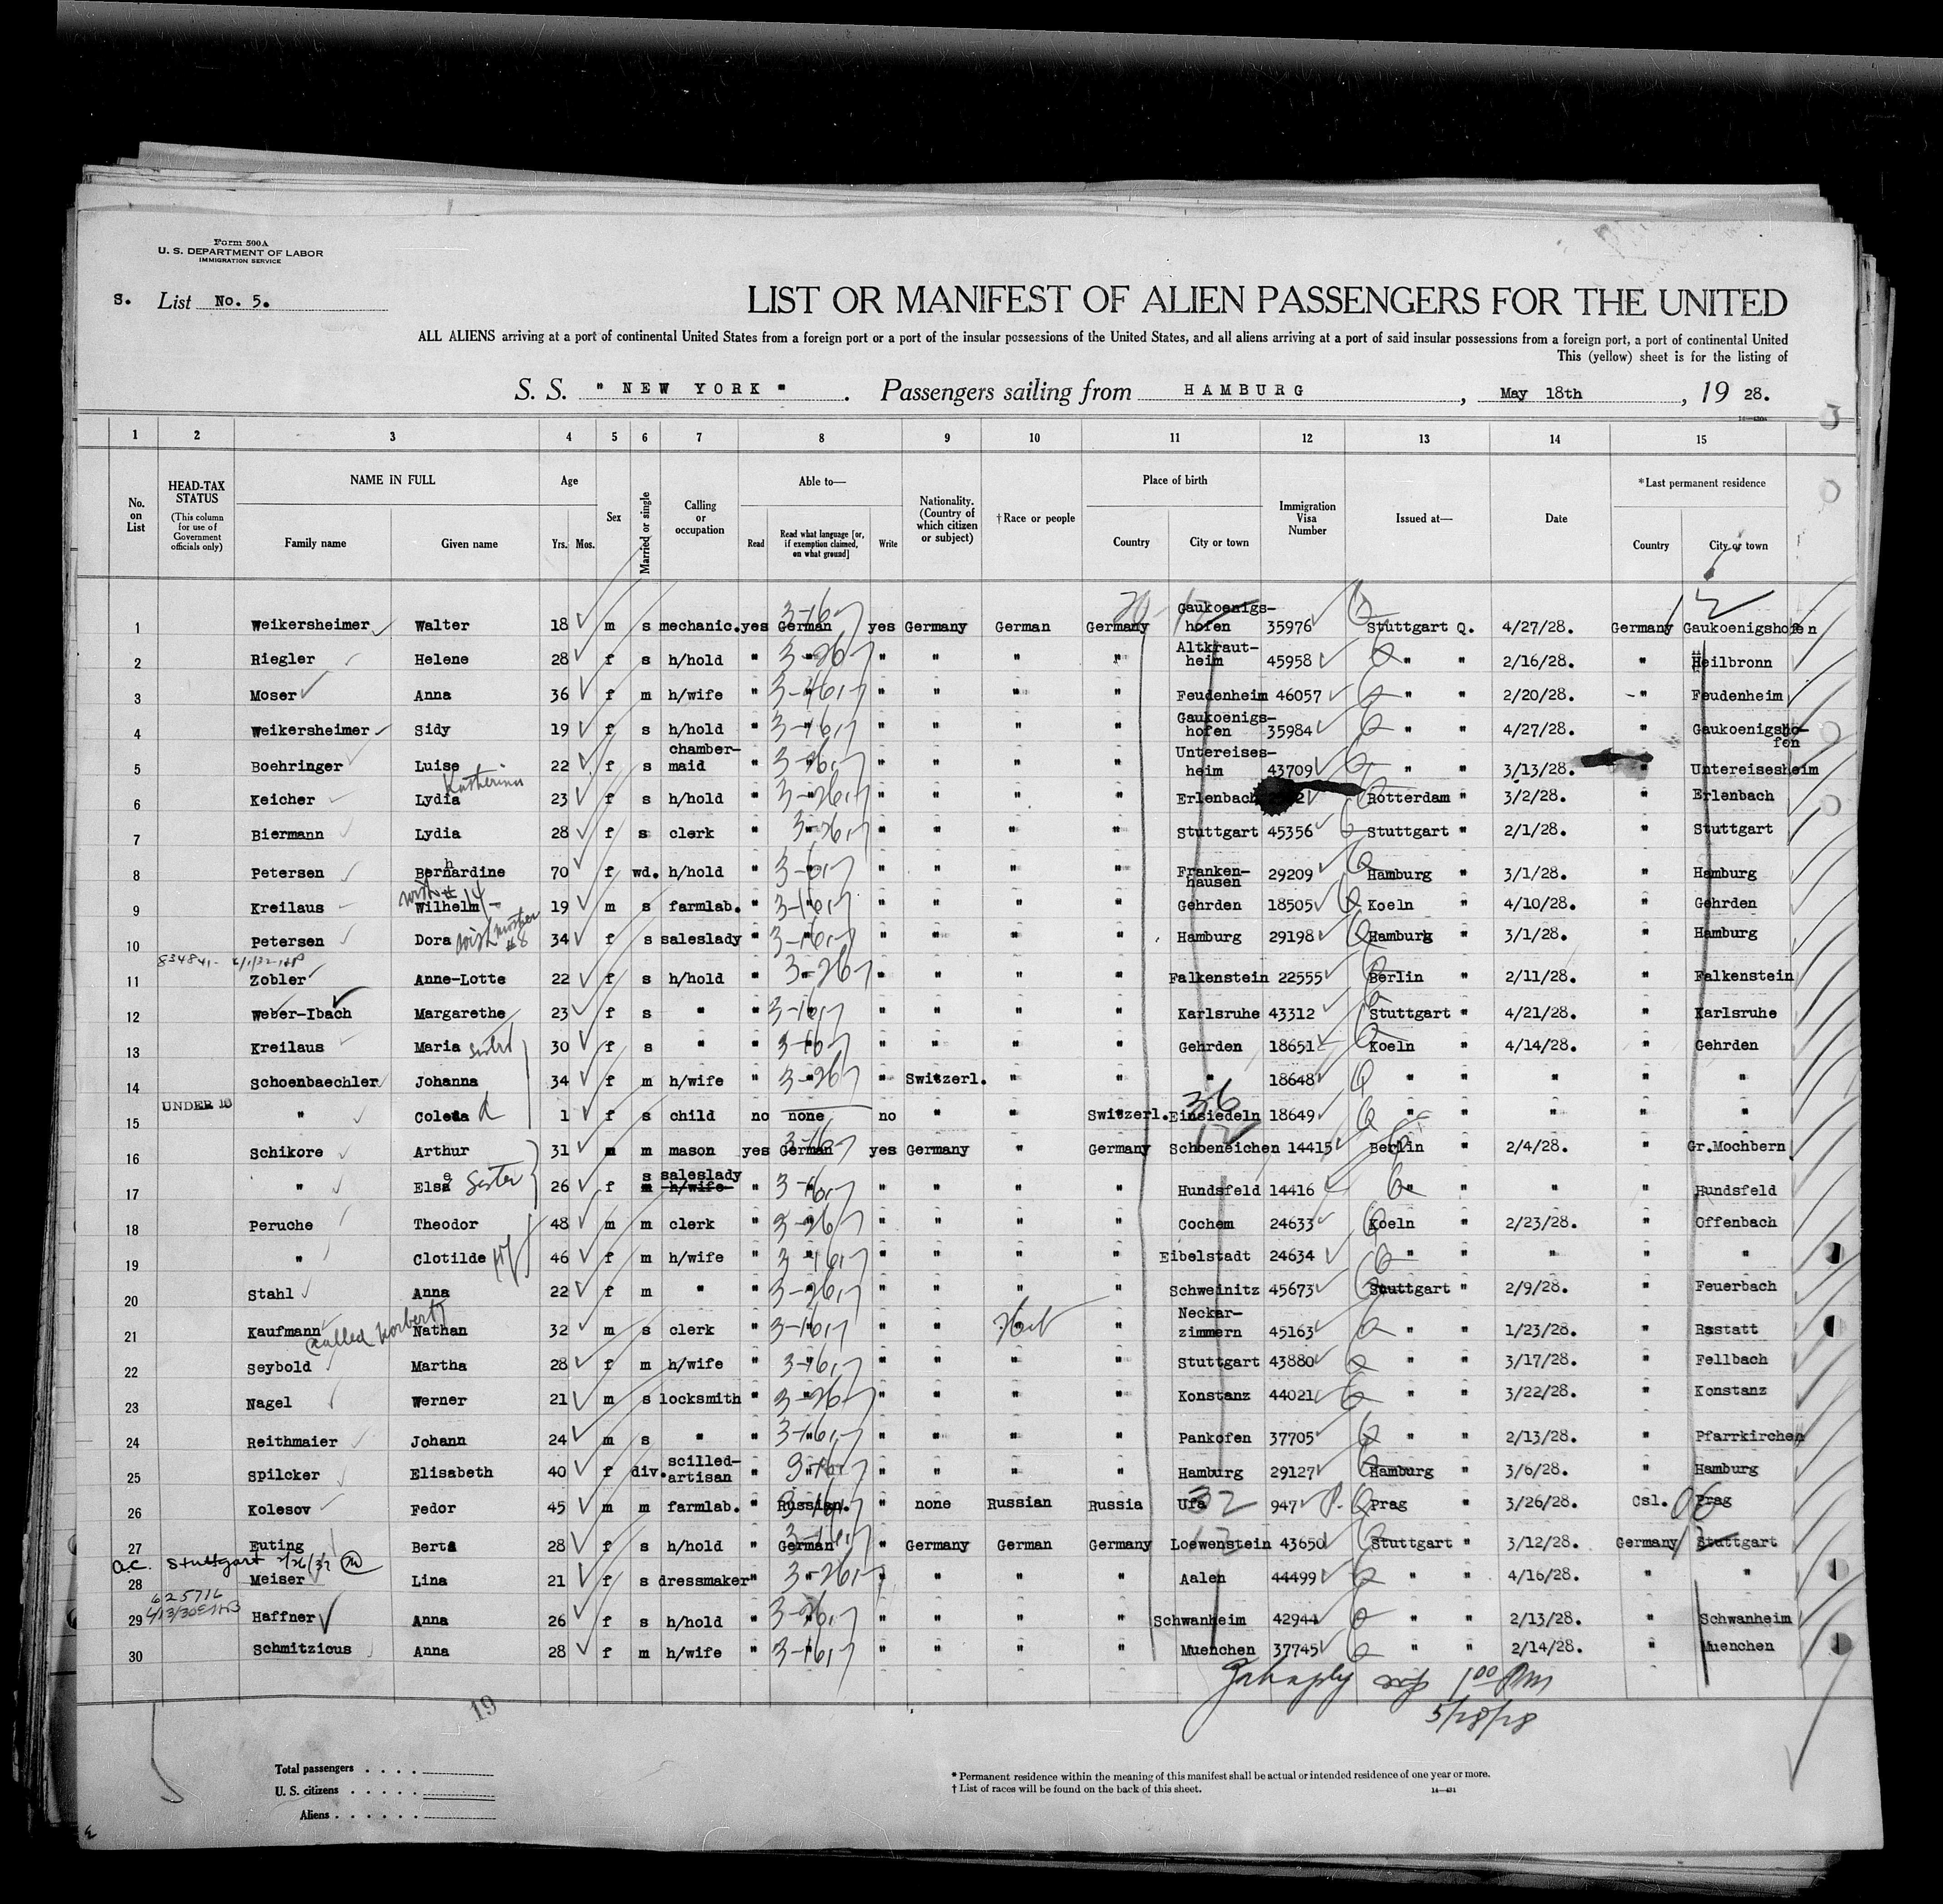 Form 500A
U. S. DEPARTMENT OF LABOR
IMMIGRATION SERVICE
S. List No. 5.
LIST OR MANIFEST OF ALIEN PASSENGERS FOR THE UNITED
ALL ALIENS arriving at a port of continental United States from a foreign port or a port of the insular possessions of the United States, and all aliens arriving at a port of said insular possessions from a foreign port, a port of continental United
This (yellow) sheet is for the listing of
S. S. " NEW YORK " . Passengers sailing from HAMBURG , May 18th , 19 28.
1 2 3 4 5 6 7 8 9 10 11 12 13 14 15
No. on List HEAD-TAX STATUS (This column for use of Government officials only) NAME IN FULL Family name Given name Age Yrs. Mos. Sex Married or single Calling or occupation Able to— Read Read what language [or, if exemption claimed, on what ground] Write Nationality. (Country of which citizen or subject) †Race or people Place of birth Country City or town Immigration Visa Number Issued at— Date *Last permanent residence Country City or town
1 Weikersheimer Walter 18 m s mechanic. yes German yes Germany German Germany Gaukoenigs-hofen 35976 Stuttgart Q. 4/27/28. Germany Gaukoenigshofen
2 Riegler Helene 28 f s h/hold " " " " " " Altkraut-heim 45958 " " 2/16/28. " Heilbronn
3 Moser Anna 36 f m h/wife " " " " " " Feudenheim 46057 " " 2/20/28. " Feudenheim
4 Weikersheimer Sidy 19 f s h/hold " " " " " " Gaukoenigs-hofen 35984 " " 4/27/28. " Gaukoenigsho-fen
5 Boehringer Luise 22 f s chamber-maid " " " " " " Untereises-heim 43709 " " 3/13/28. " Untereisesheim
6 Keicher Lydia Katherina 23 f s h/hold " " " " " " Erlenbach Rotterdam " 3/2/28. " Erlenbach
7 Biermann Lydia 28 f s clerk " " " " " " Stuttgart 45356 Stuttgart " 2/1/28. " Stuttgart
8 Petersen Bernhardine 70 f wd. h/hold " " " " " " Franken-hausen 29209 Hamburg " 3/1/28. " Hamburg
with # 14
9 Kreilaus Wilhelm 19 m s farmlab. " " " " " " Gehrden 18505 Koeln " 4/10/28. " Gehrden
10 Petersen Dora with mother #8 34 f s saleslady " " " " " " Hamburg 29198 Hamburg " 3/1/28. " Hamburg
11 Zobler Anne-Lotte 22 f s h/hold " " " " " " Falkenstein 22555 Berlin " 2/11/28. " Falkenstein
12 Weber-Ibach Margarethe 23 f s " " " " " " " Karlsruhe 43312 Stuttgart " 4/21/28. " Karlsruhe
13 Kreilaus Maria sister 30 f s " " " " " " " Gehrden 18651 Koeln " 4/14/28. " Gehrden
14 Schoenbaechler Johanna 34 f m h/wife " " " Switzerl. " " " 18648 " " " " "
UNDER 10
15 " Coleta d 1 f s child no none no " " Switzerl. Einsiedeln 18649 " " " " "
16 Schikore Arthur 31 m m mason yes German yes Germany " Germany Schoeneichen 14415 Berlin " 2/4/28. " Gr.Mochbern
17 " Else Sister 26 f s m saleslady h/wife " " " " " " Hundsfeld 14416 " " " " Hundsfeld
18 Peruche Theodor 48 m m clerk " " " " " " Cochem 24633 Koeln " 2/23/28. " Offenbach
19 " Clotilde Wf 46 f m h/wife " " " " " " Eibelstadt 24634 " " " " "
20 Stahl Anna 22 f m " " " " " " " Schweinitz 45673 Stuttgart " 2/9/28. " Feuerbach
21 Kaufmann Nathan called Norbert 32 m s clerk " " " " Heb " Neckar-zimmern 45163 " " 1/23/28. " Rastatt
22 Seybold Martha 28 f m h/wife " " " " " " Stuttgart 43880 " " 3/17/28. " Fellbach
23 Nagel Werner 21 m s locksmith " " " " " " Konstanz 44021 " " 3/22/28. " Konstanz
24 Reithmaier Johann 24 m s " " " " " " " Pankofen 37705 " " 2/13/28. " Pfarrkirchen
25 Spilcker Elisabeth 40 f div. scilled-artisan " " " " " " Hamburg 29127 Hamburg " 3/6/28. " Hamburg
26 Kolesov Fedor 45 m m farmlab. " Russian. " none Russian Russia Ufa 947 Prag " 3/26/28. Csl. Prag
27 Euting Berta 28 f s h/hold " German " Germany German Germany Loewenstein 43650 Stuttgart " 3/12/28. Germany Stuttgart
28 Meiser Lina 21 f s dressmaker " " " " " " Aalen 44499 " " 4/16/28. " "
625716
29 Haffner Anna 26 f s h/hold " " " " " " Schwanheim 42944 " " 2/13/28. " Schwanheim
30 Schmitzicus Anna 28 f m h/wife " " " " " " Muenchen 37745 " " 2/14/28. " Muenchen
1 00 PM
5/28/28
19
Total passengers . . . .
U. S. citizens . . . . .
Aliens . . . . . .
* Permanent residence within the meaning of this manifest shall be actual or intended residence of one year or more.
† List of races will be found on the back of this sheet.